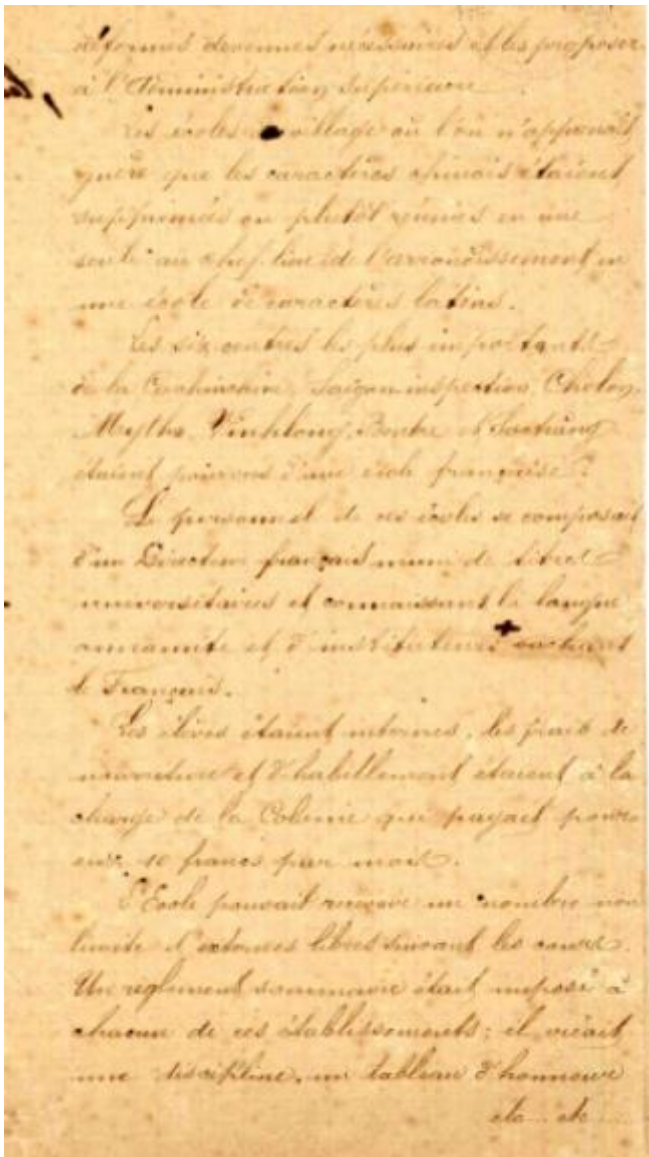 réformes devenues nécessaires et les proposer
à l'Administration Supérieure
Les écoles village où l'on n'apprenait
guère que les caractères chinois étaient
supprimées ou plutôt réunies en une
seule au chef-lieu de l'arrondissement en
une école de caractères latins.
Les six centres les plus importants
de la Cochinchine, Saigon inspection, Cholon,
Mytho, Vinhlong, Bentre et Soctrang
étaient pourvus d'une école française
Le personnel de ces écoles se composait
d'un Directeur français muni de titres
universitaires et connaissant la langue
annamite et d'instituteurs sachant
le Français.
Les élèves étaient internes, les frais de
nourriture et d'habillement étaient à la
charge de la Colonie qui payait pour
eux 10 francs par mois.
L'Ecole pouvait recevoir un nombre non
limité d'externes libres suivant les cours.
Un reglement sommaire était imposé à
chacun de ces établissements; il créait
une discipline, un tableau d'honneur
etc... etc...